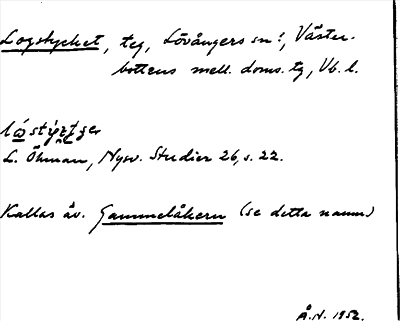 Logstycket, teg, Lövångers sn!, Väster-
bottens mell. doms. tg, Vb. l.
L. Öhman, Nysv. Studier 26, s. 22.
Kallas äv. Gammelåkern (se detta namn)
Å.N. 1952.